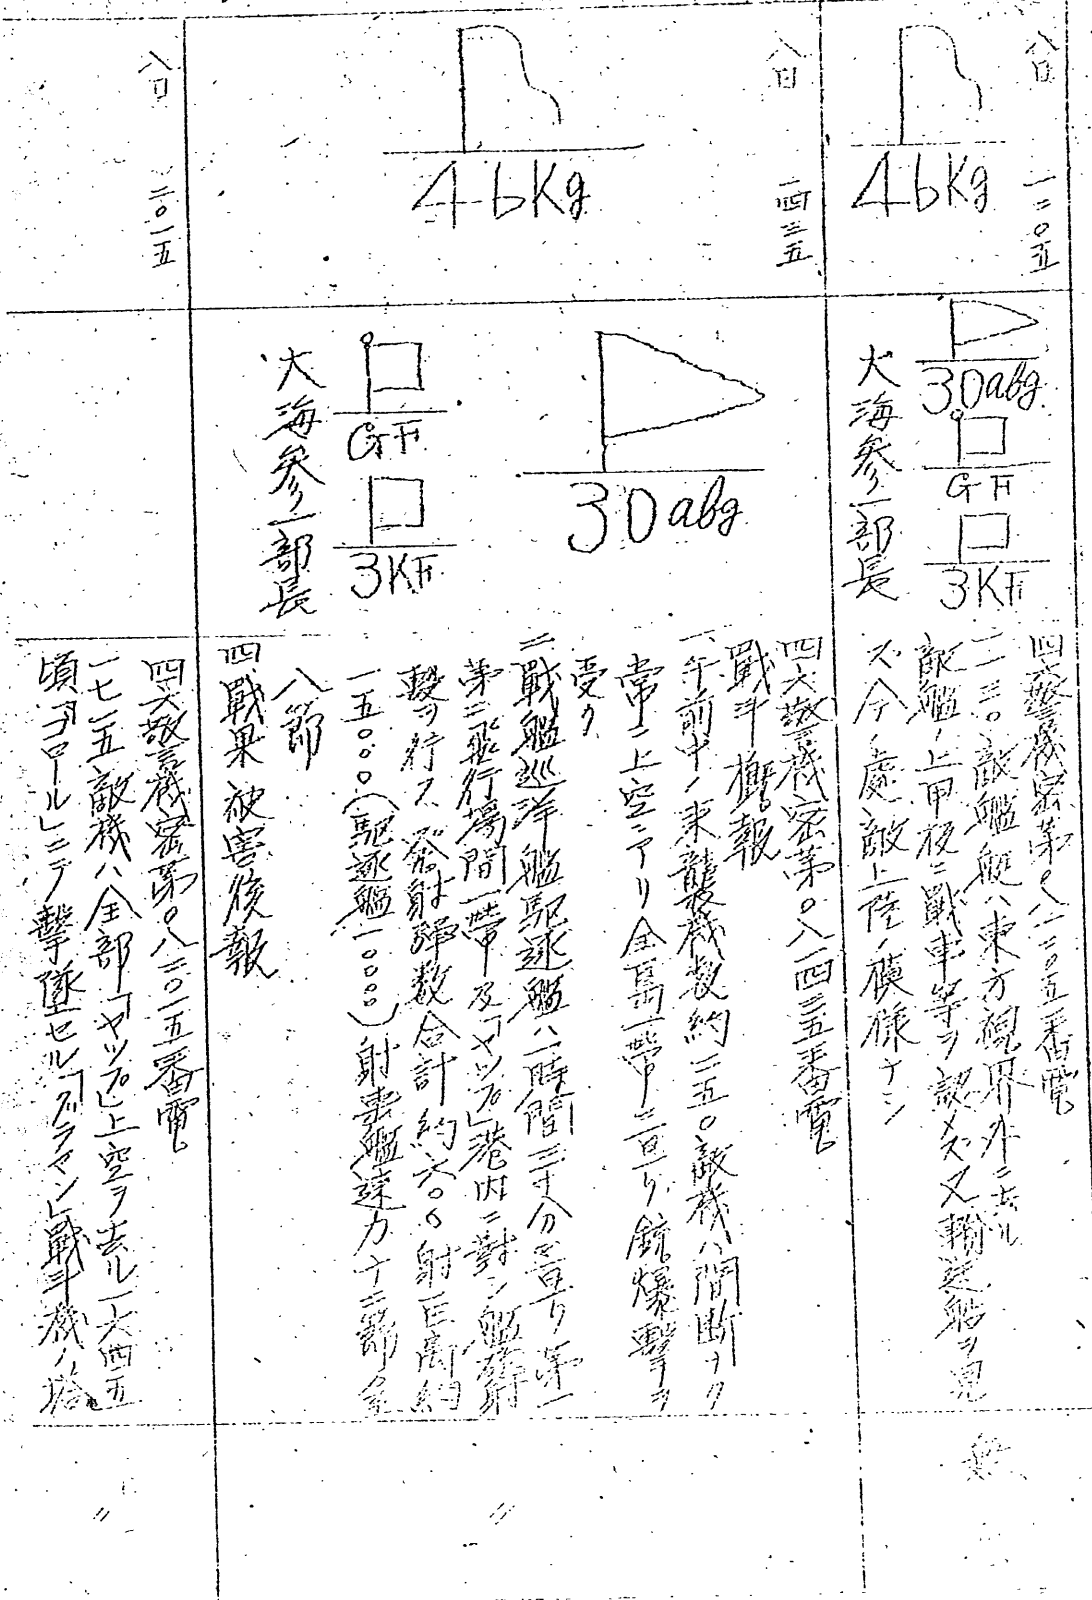 八日
一二〇五
46Kg
30abg
GF
3KF
大海参一部長
四六警機密第〇八一二〇五番電
一一三〇敵艦艇ハ東方視界外ニ去ル
敵艦ノ上甲板ニ戰車等ヲ認メズ又輸送船ヲ見
ズ今ノ處敵上陸ノ模様ナシ
八日
一四三五
46Kg
30abg
GF
3KF
大海参一部長
四六警機密第〇八一四三五番電
戰斗概報
一、午前中ノ来襲機数約二五〇敵機ハ間断ナク
常ニ上空ニアリ全島一帶ニ亘リ銃爆擊ヲ
受ク
二、戰艦巡洋艦駆逐艦ハ一時間三十分ニ亘リ第一
第二飛行場間一帶及「ヤップ」港内ニ對シ艦砲射
擊ヲ行ス発射弾数合計約六〇〇射距離約
一五〇〇〇(駆逐艦一〇〇〇〇)射擊艦速力十二節乃至
八節
四戰果被害後報
八日
二〇一五
四六警機密第〇八二〇一五番電
一七一五敵機ハ全部「ヤップ」上空ヲ去ル一六四五
頃「コロール」ニテ擊墜セル「グラマン」戰斗機ノ搭
〃
〃